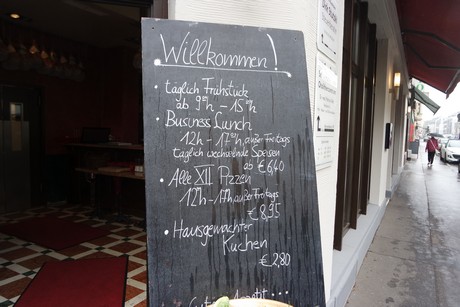 Willkommen!
• täglich Frühstück
ab 9h - 15h
• Business Lunch
12h - 17h außer Freitags
täglich wechselnde Speisen
ab €6,40
• Alle XII Pizzen
12h - 17h außer Freitags
€8,35
• Hausgemachter
Kuchen
€2,80